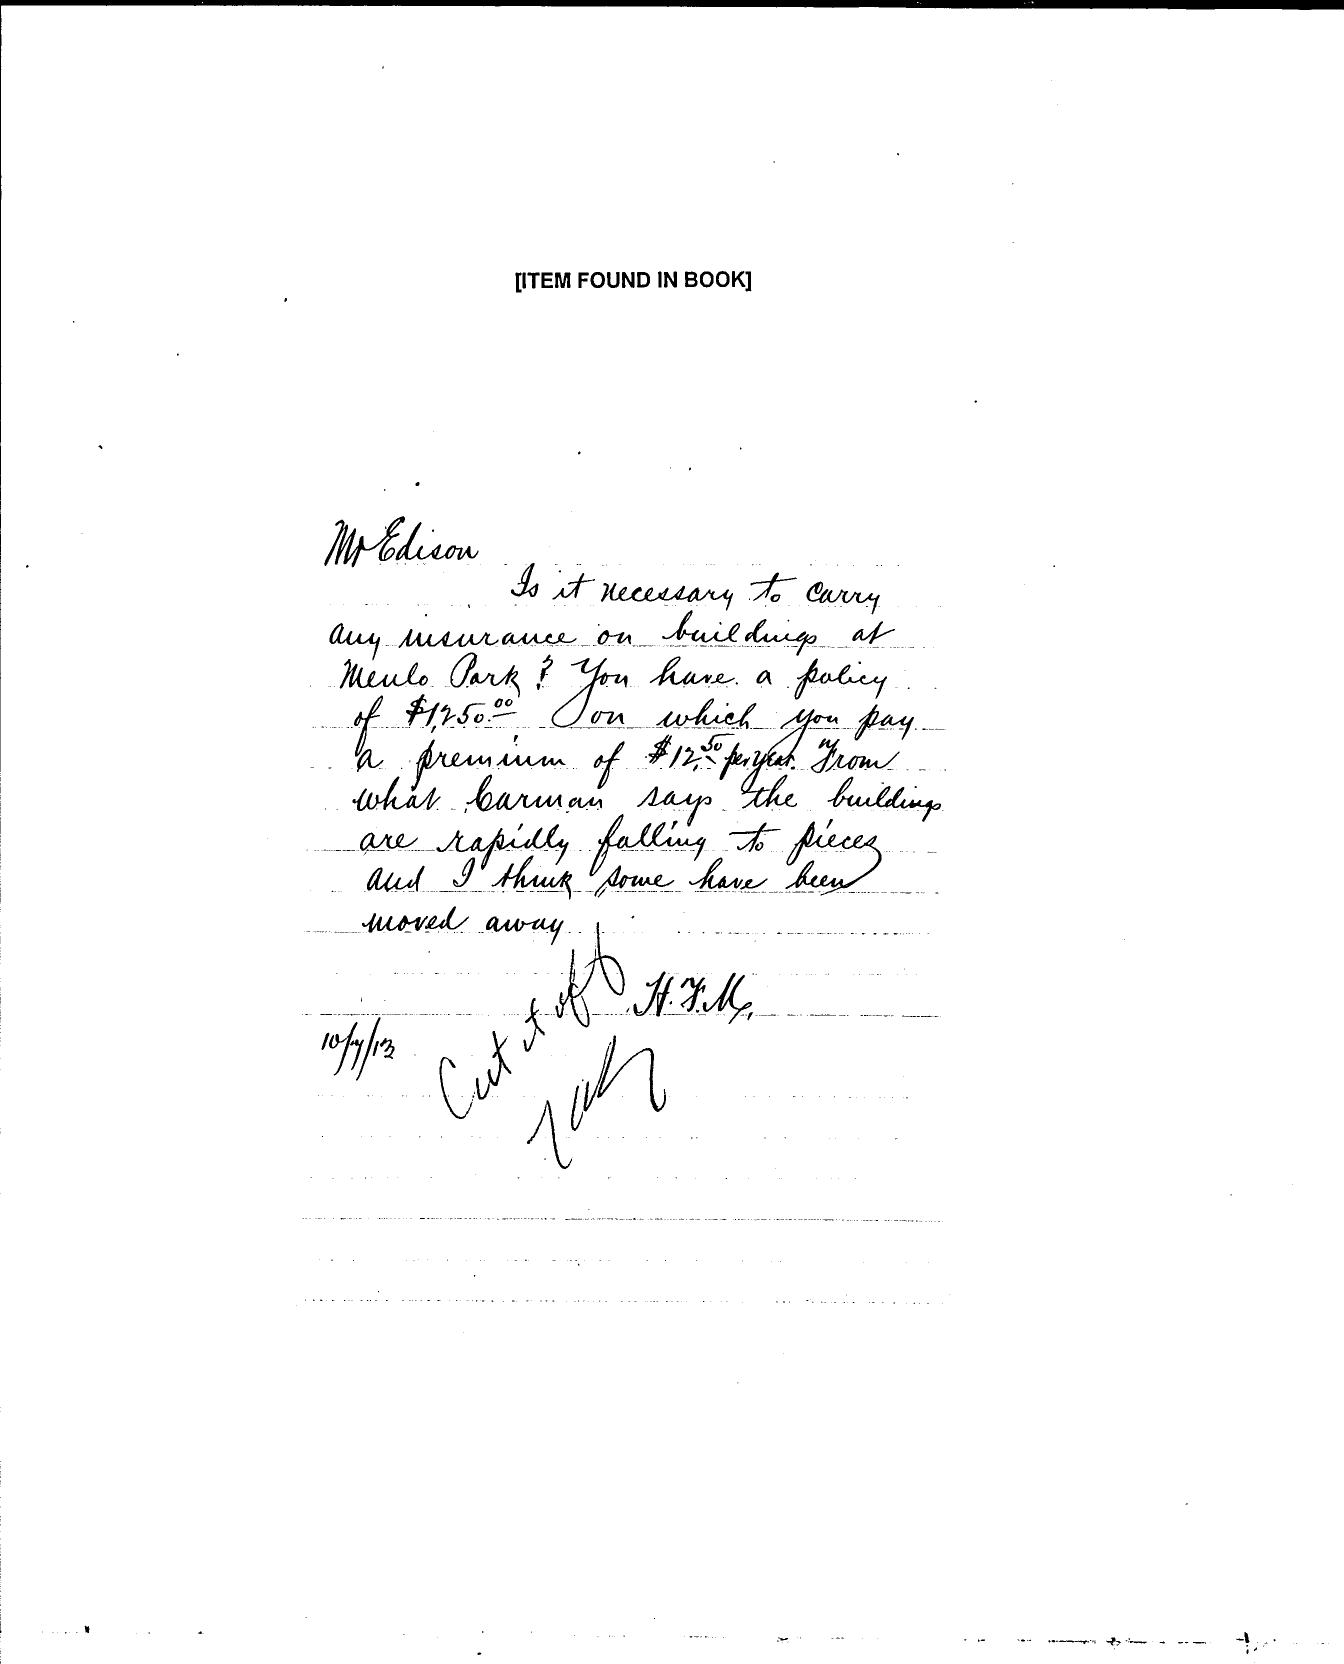 [ITEM FOUND IN BOOK]
Mr Edison
Is it necessary to carry
any insurance on buildings at
Menlo Park? You have a policy
of $1,250.00 on which you pay
a premium of $12.50 per year. From
what Carman says the buildings
are rapidly falling to pieces
and I think some have been
moved away
H.F.M.
10/7/13
Cut it off